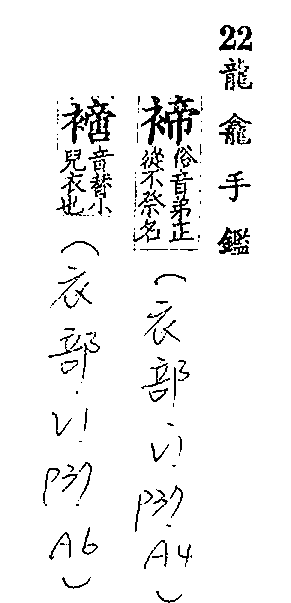 22龍龕手鑑
褅俗音弟正
從示祭名
(衣部.V1.P37.A4)
音替小
兒衣也
(衣部.V1.P37.A6)